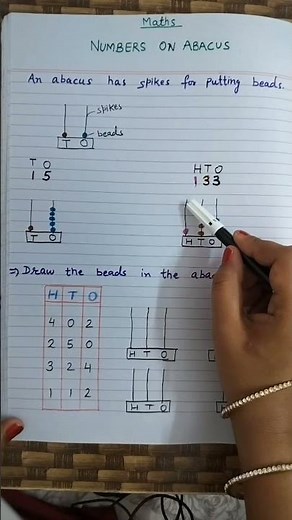 Maths
NUMBERS ON ABACUS
An abacus has spikes for putting beads.
spikes
beads
T O
T O
1 5
H T O
1 3 3
T O
H T O
⇒ Draw the beads in the aba
H T O
4 0 2
2 5 0
3 2 4
1 1 2
H T O
H T O